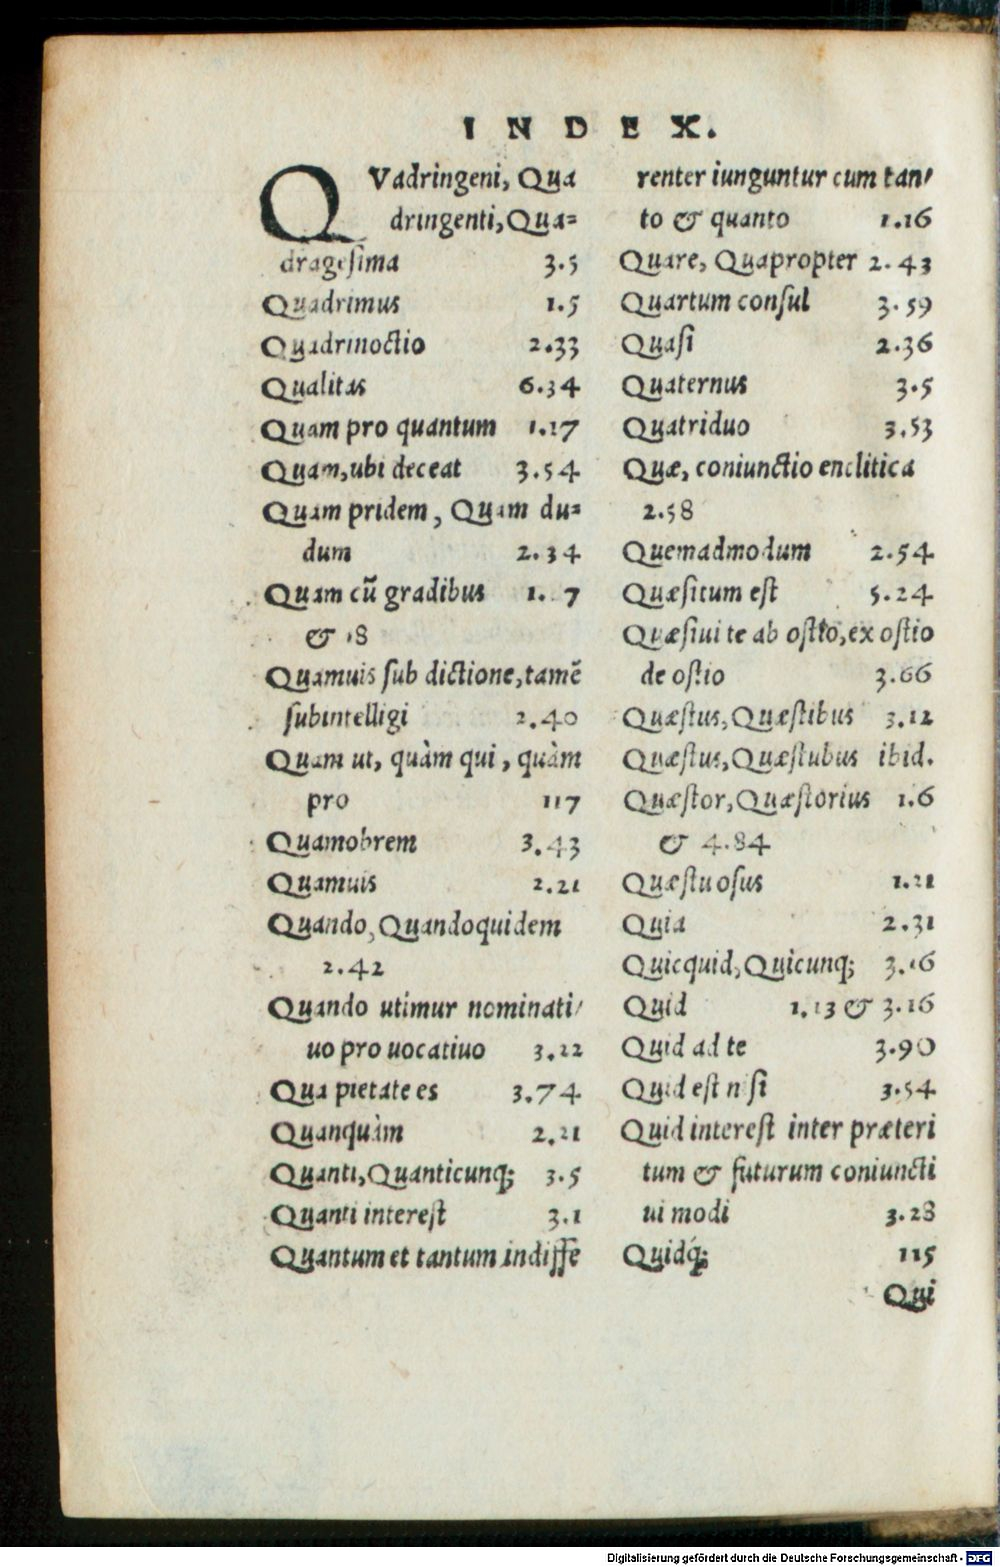 INDEX.
QVadringeni, Qua
dringenti, Qua=
dragesima 3.5
Quadrimus 1.5
Quadrinoctio 2.33
Qualitas 6.34
Quam pro quantum 1.17
Quam, ubi deceat 3.54
Quam pridem, Quam du=
dum 2.34
Quam cũ gradibus 1. 7
& 18
Quamuis sub dictione, tamẽ
subintelligi 2.40
Quam ut, quàm qui, quàm
pro 117
Quamobrem 3.43
Quamuis 2.21
Quando, Quandoquidem
2.42
Quando utimur nominati
uo pro uocatiuo 3.22
Qua pietate es 3.74
Quanquàm 2.21
Quanti, Quanticunq; 3.5
Quanti interest 3.1
Quantum et tantum indiffe
renter iunguntur cum tan
to & quanto 1.16
Quare, Quapropter 2.43
Quartum consul 3.59
Quasi 2.36
Quaternus 3.5
Quatriduo 3.53
Quæ, coniunctio enclitica
2.58
Quemadmodum 2.54
Quæsitum est 5.24
Quæsiui te ab ostio, ex ostio
de ostio 3.66
Quæstus, Quæstibus 3.12
Quæstus, Quæstubus ibid.
Quæstor, Quæstorius 1.6
& 4.84
Quæstuosus 1.21
Quia 2.31
Quicquid, Quicunq; 3.16
Quid 1.13 & 3.16
Quid ad te 3.90
Quid est nisi 3.54
Quid interest inter præteri
tum & futurum coniuncti
ui modi 3.28
Quidq́; 115
Qui
Digitalisierung gefördert durch die Deutsche Forschungsgemeinschaft - DFG